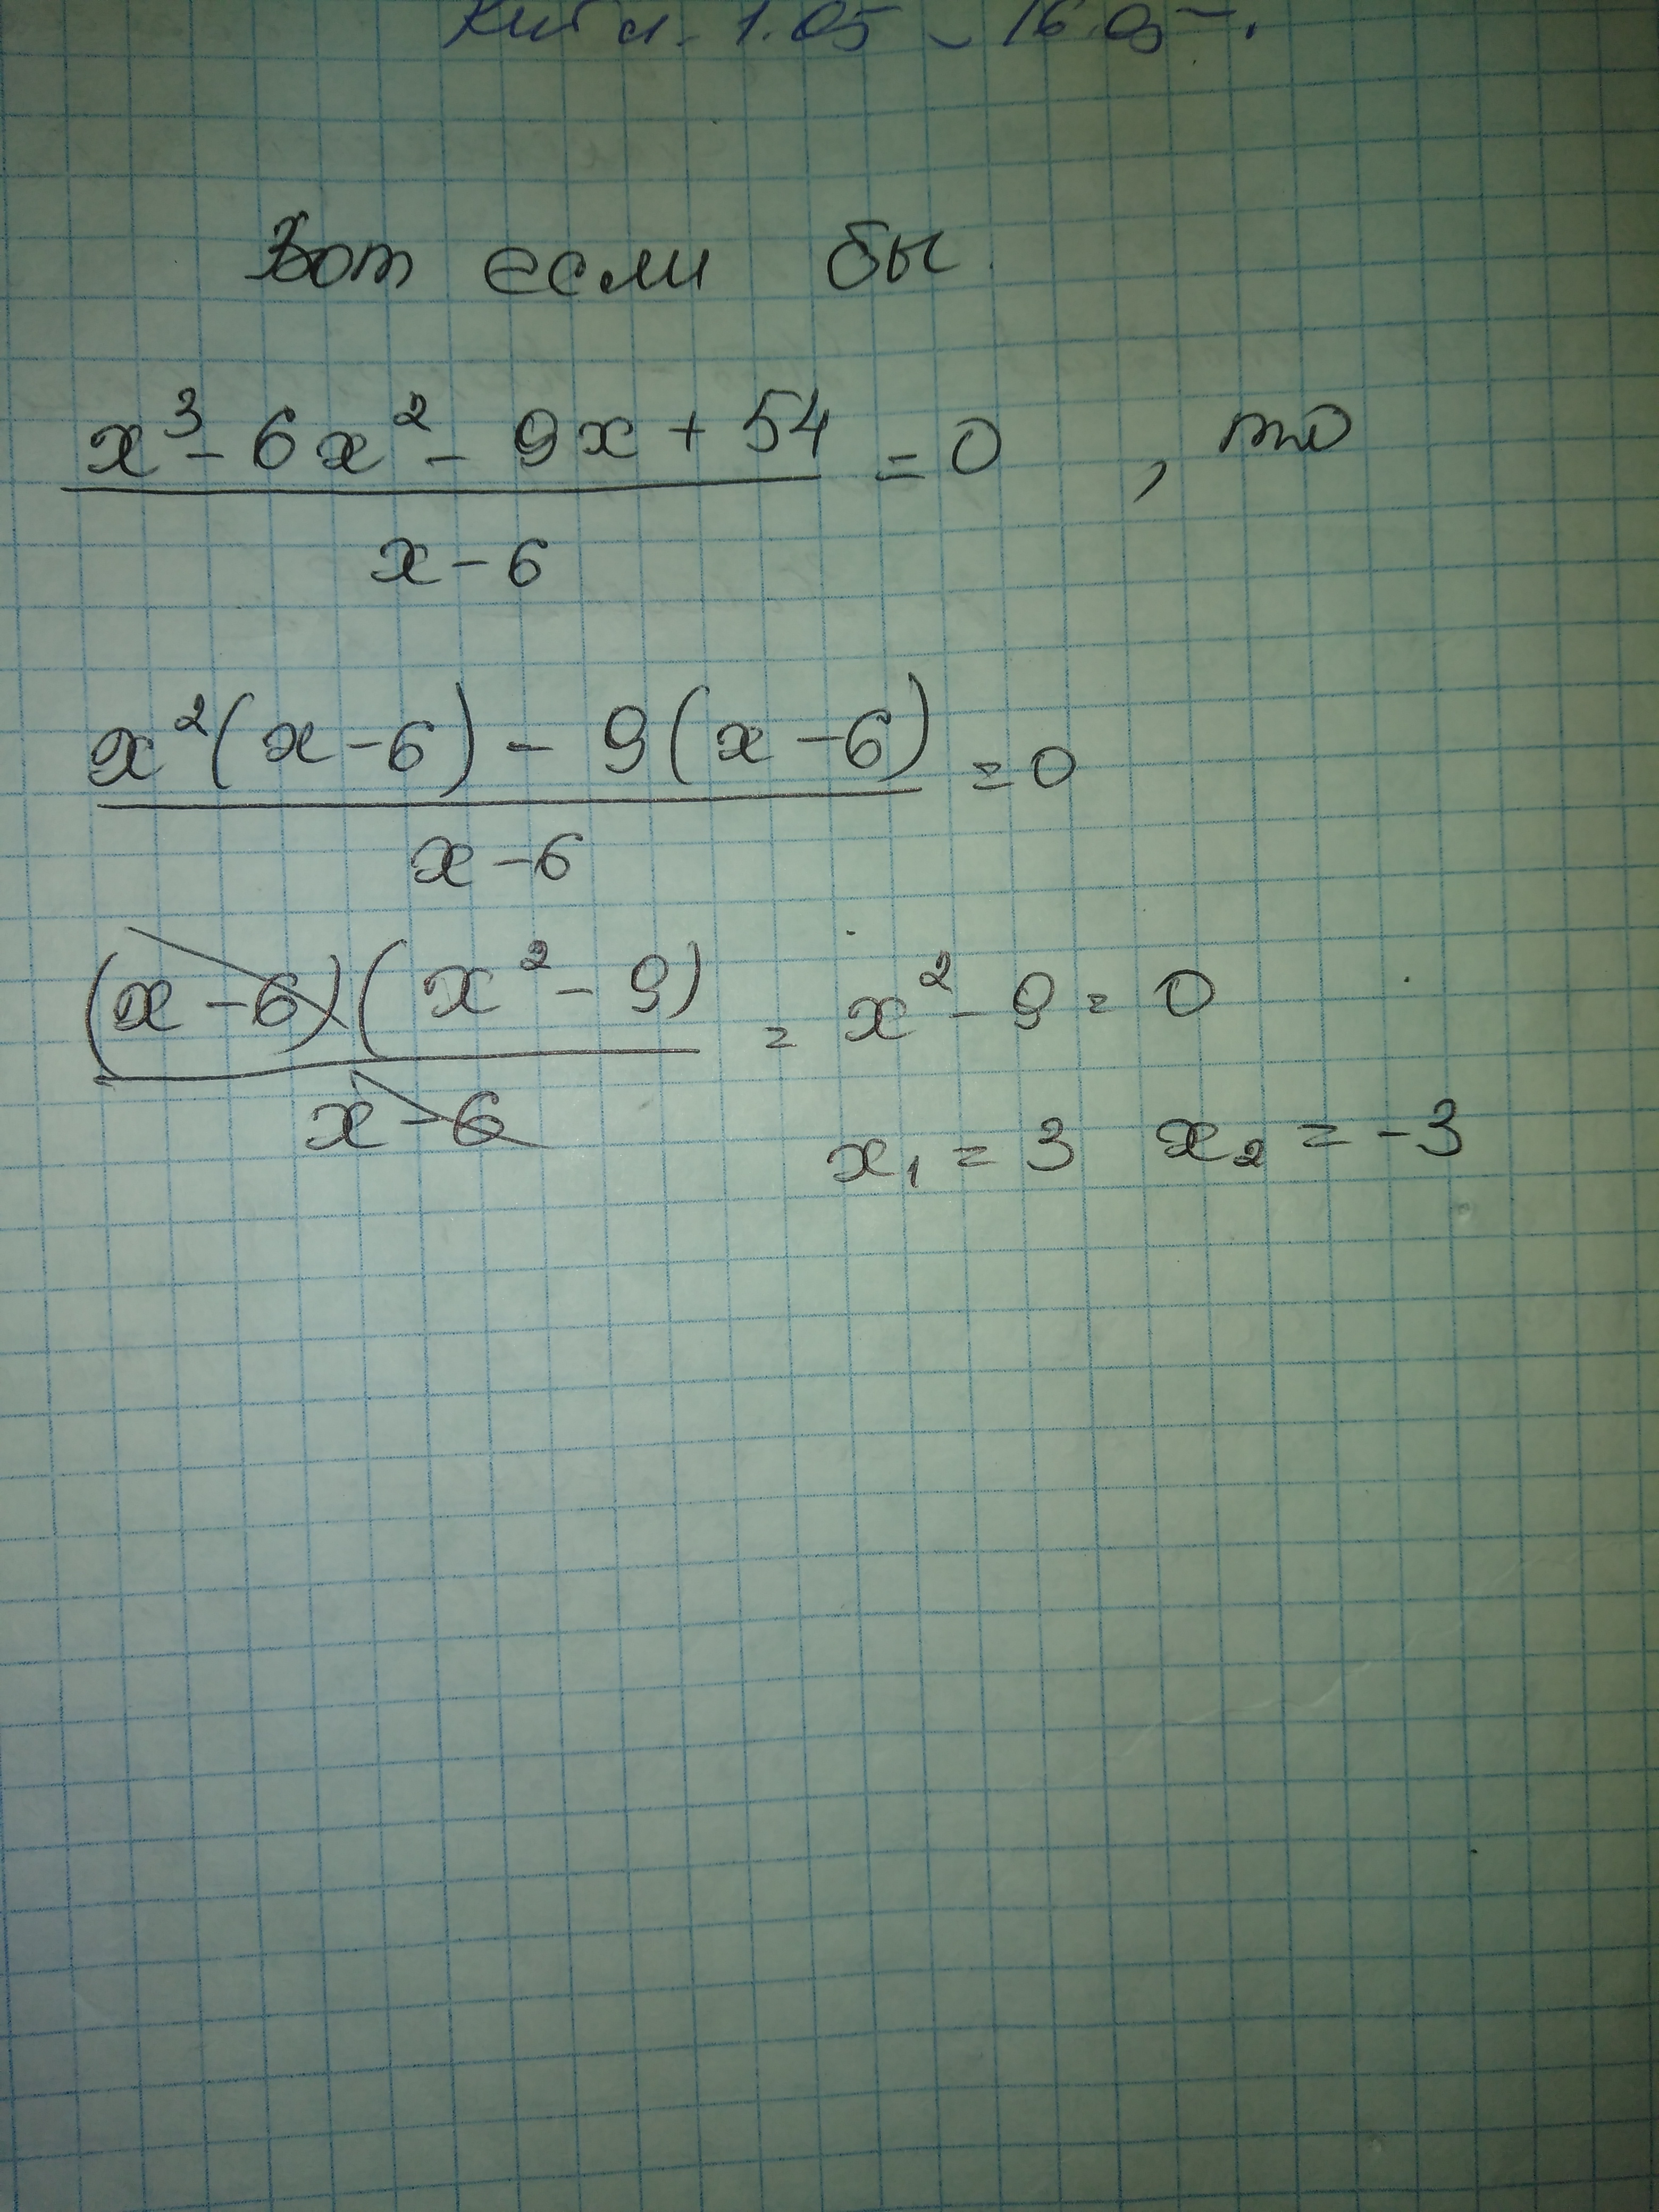 1.05 - 16.05
Вот если бы
x³ - 6x² - 9x + 54 = 0 , то
x - 6
x²(x - 6) - 9(x - 6) = 0
x - 6
(x - 6)(x² - 9) = x² - 9 = 0
x - 6
x₁ = 3 x₂ = -3